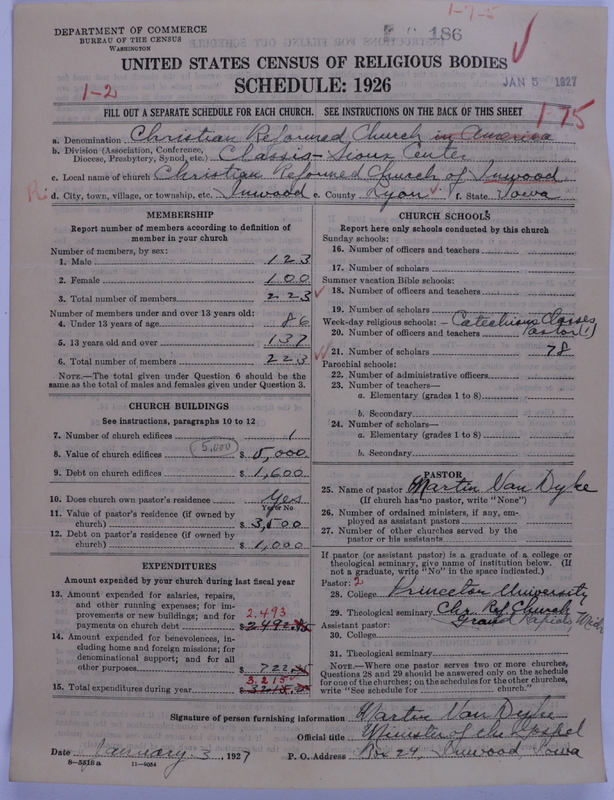 1-7-5
186
DEPARTMENT OF COMMERCE
BUREAU OF THE CENSUS
WASHINGTON
UNITED STATES CENSUS OF RELIGIOUS BODIES
SCHEDULE: 1926
JAN 5 1927
1-2
FILL OUT A SEPARATE SCHEDULE FOR EACH CHURCH. SEE INSTRUCTIONS ON THE BACK OF THIS SHEET
1-75
a. Denomination Christian Reformed Church in America
b. Division (Association, Conference, Diocese, Presbytery, Synod, etc.) Classis-Sioux Center
c. Local name of church Christian Reformed Church of Inwood
d. City, town, village, or township, etc. Inwood e. County Lyon f. State Iowa
MEMBERSHIP
Report number of members according to definition of
member in your church
Number of members, by sex:
1. Male 123
2. Female 100
3. Total number of members 223
Number of members under and over 13 years old:
4. Under 13 years of age 86
5. 13 years old and over 137
6. Total number of members 223
NOTE.—The total given under Question 6 should be the
same as the total of males and females given under Question 3.
CHURCH BUILDINGS
See instructions, paragraphs 10 to 12
7. Number of church edifices 1
(5,000)
8. Value of church edifices $ 5,000
9. Debt on church edifices $ 1,600
10. Does church own pastor's residence Yes
Yes or No
11. Value of pastor's residence (if owned by
church) $ 3,500
12. Debt on pastor's residence (if owned by
church) $ 1,000
EXPENDITURES
Amount expended by your church during last fiscal year
13. Amount expended for salaries, repairs,
and other running expenses; for im-
provements or new buildings; and for 2.493
payments on church debt $ 2492
14. Amount expended for benevolences, in-
cluding home and foreign missions; for
denominational support; and for all
other purposes $ 722
3.215
15. Total expenditures during year $
CHURCH SCHOOLS
Report here only schools conducted by this church
Sunday schools:
16. Number of officers and teachers
17. Number of scholars
Summer vacation Bible schools:
18. Number of officers and teachers
19. Number of scholars
Week-day religious schools: - Catechism Classes
20. Number of officers and teachers Pastor (1)
21. Number of scholars 78
Parochial schools:
22. Number of administrative officers
23. Number of teachers—
a. Elementary (grades 1 to 8)
b. Secondary
24. Number of scholars—
a. Elementary (grades 1 to 8)
b. Secondary
PASTOR
25. Name of pastor Martin Van Dyke
(If church has no pastor, write "None")
26. Number of ordained ministers, if any, em-
ployed as assistant pastors
27. Number of other churches served by the
pastor or his assistants
If pastor (or assistant pastor) is a graduate of a college or
theological seminary, give name of institution below. (If
not a graduate, write "No" in the space indicated.)
Pastor: 2
28. College Princeton University
29. Theological seminary Chr. Ref. Church
Grand Rapids, Mich
Assistant pastor:
30. College
31. Theological seminary
NOTE.—Where one pastor serves two or more churches,
Questions 28 and 29 should be answered only on the schedule
for one of the churches; on the schedules for the other churches,
write "See schedule for church."
Signature of person furnishing information Martin Van Dyke
Official title Minister of the Gospel
Date January 3, 1927 P. O. Address Box 24, Inwood, Iowa
8-5518a 11-9034